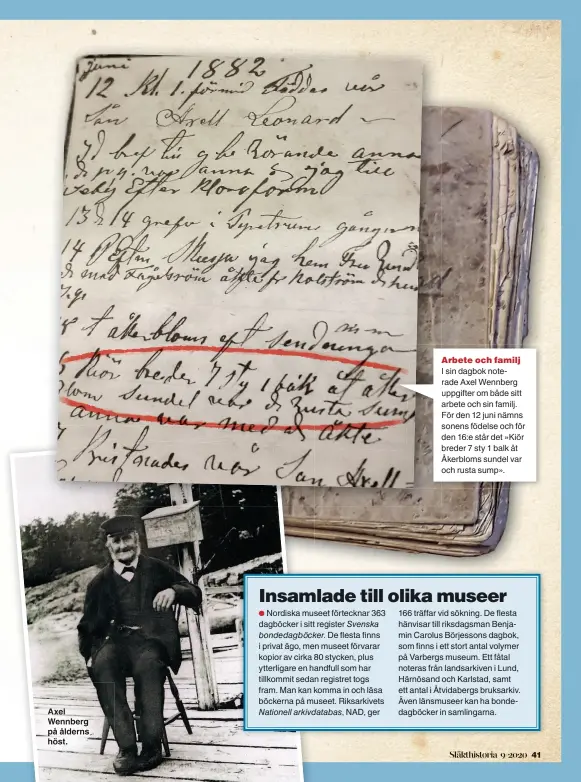 Juni 1882
12 Kl. 1. förmid föddes vår
Sån Axell Leonard
13 & 14 grefv i
14
Åkerbloms eft sendninga
Kiör breder 7 sty 1 balk åt åker
blom sundel var & rusta sump
anna var med & åkte
Kristnades vår Son Axell
Arbete och familj
I sin dagbok note-
rade Axel Wennberg
uppgifter om både sitt
arbete och sin familj.
För den 12 juni nämns
sonens födelse och för
den 16:e står det »Kiör
breder 7 sty 1 balk åt
Åkerbloms sundel var
och rusta sump».
Axel
Wennberg
på ålderns
höst.
Insamlade till olika museer
● Nordiska museet förtecknar 363
dagböcker i sitt register Svenska
bondedagböcker. De flesta finns
i privat ägo, men museet förvarar
kopior av cirka 80 stycken, plus
ytterligare en handfull som har
tillkommit sedan registret togs
fram. Man kan komma in och läsa
böckerna på museet. Riksarkivets
Nationell arkivdatabas, NAD, ger
166 träffar vid sökning. De flesta
hänvisar till riksdagsman Benja-
min Carolus Börjessons dagbok,
som finns i ett stort antal volymer
på Varbergs museum. Ett fåtal
noteras från landsarkiven i Lund,
Härnösand och Karlstad, samt
ett antal i Åtvidabergs bruksarkiv.
Även länsmuseer kan ha bonde-
dagböcker in samlingarna.
Släkthistoria 9-2020 41